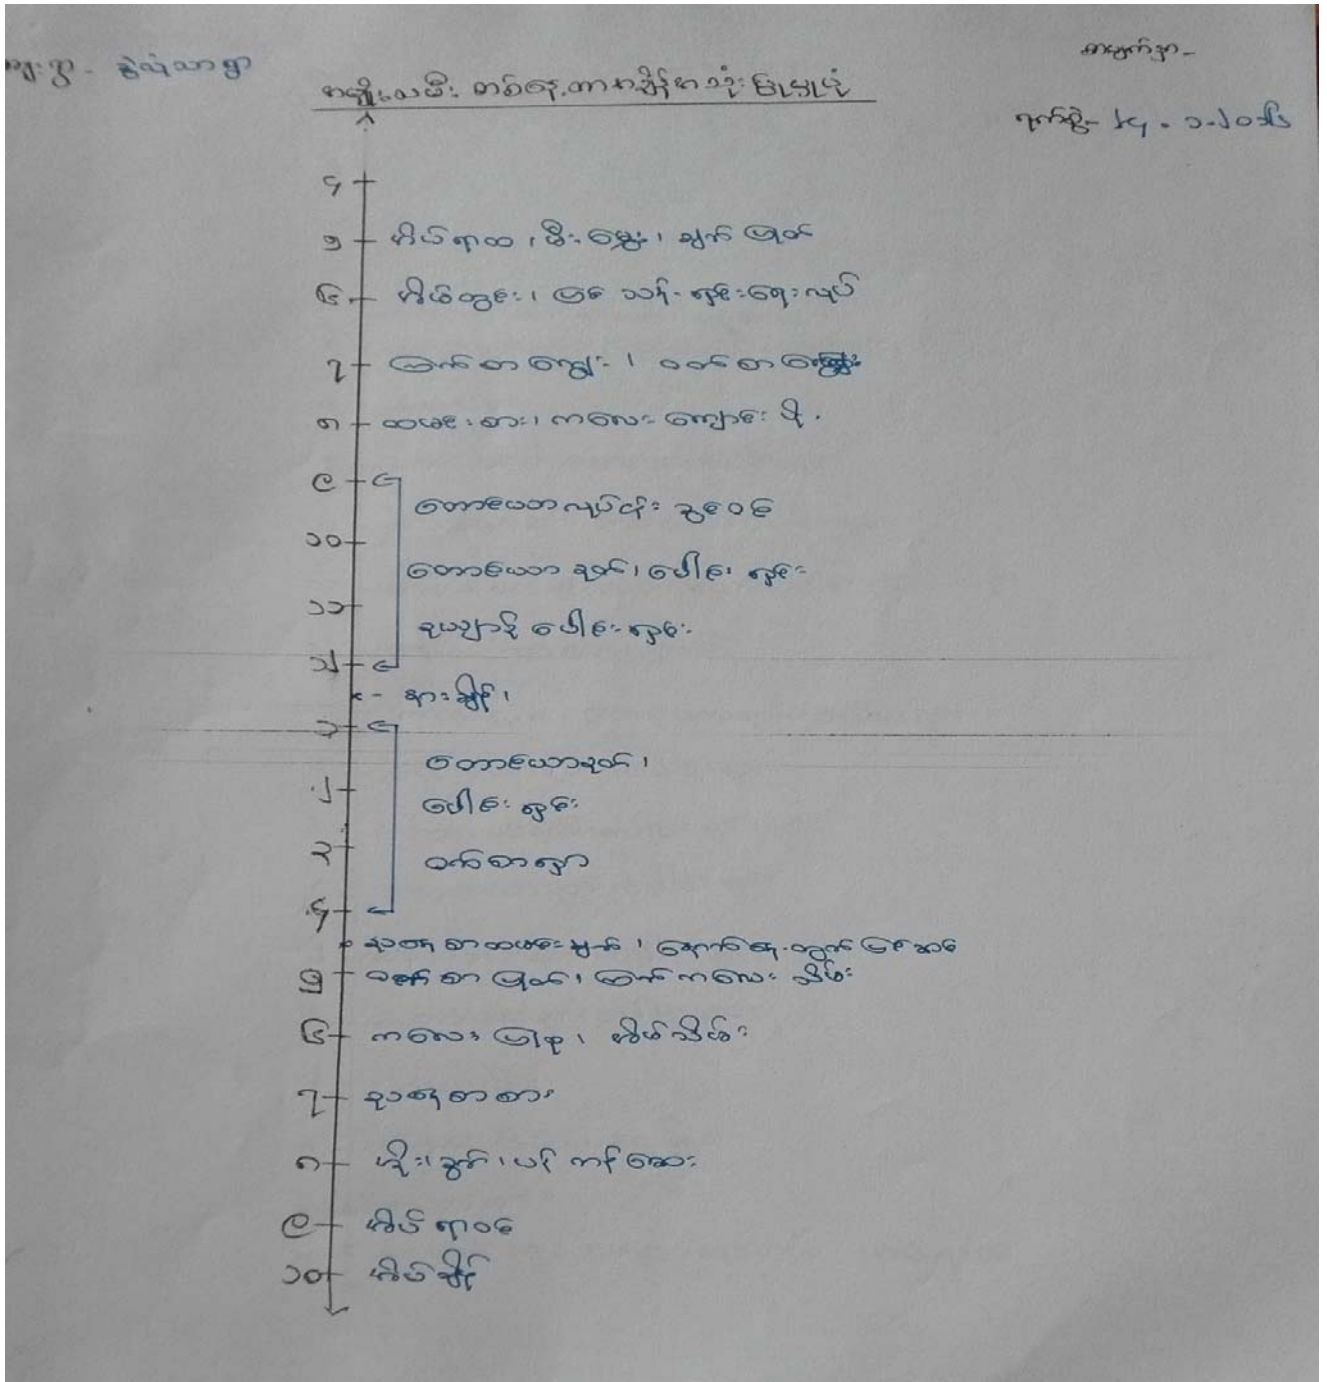 ကျေးရွာ - နွဲ့သုံသာရွာ
စာမျက်နှာ -
အမျိုးသမီး တစ်နေ့တာအချိန်အသုံးပြုမှုပုံ
ရက်စွဲ - ၂၄.၁.၂၀၁၆
၄
၅ အိပ်ရာထ၊ မီးမွှေး၊ ချက်ပြုတ်
၆ အိမ်တွင်း၊ ပြင် သန့်ရှင်းရေးလုပ်
၇ ကြက်စာကျွေး၊ ဝက်စာကျွေး
၈ ထမင်းစား၊ ကလေးကျောင်းပို့.
၉
တောင်ယာလုပ်ငန်းခွင်ဝင်
၁၀
တောင်ယာခုတ်၊ ပေါင်းရှင်း
၁၁
ဥယျာဉ်ပေါင်းရှင်း
၁၂
နားချိန်၊
၁
တောင်ယာခုတ်၊
၂
ပေါင်းရှင်း
၃
ဝက်စာရှာ
၄
ညနေစာထမင်းချက်၊ နောက်နေ့တွက်ပြင်ဆင်
၅ ဝက်စာပြုတ်၊ ကြက်ကလေးသိမ်း
၆ ကလေးပြုစု၊ အိမ်သိမ်း
၇ ညနေစာစား
၈ အိုး၊ ခွက်၊ ပန်းကန်ဆေး
၉ အိပ်ရာဝင်
၁၀ အိပ်ချိန်